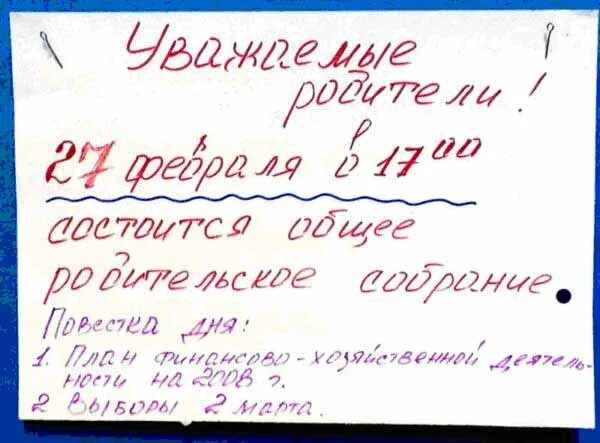 Уважаемые
родители!
27 февраля в 17 00
состоится общее
родительское собрание.
Повестка дня:
1. План финансово-хозяйственной деятель-
ности на 2008 г.
2 Выборы 2 марта.